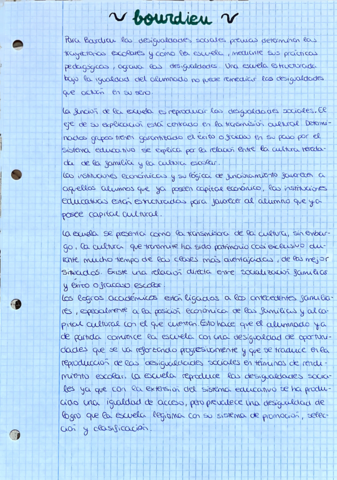 bourdieu
Para Bourdieu las desigualdades sociales previas determinan las
trayectorias escolares y como la escuela, mediante sus prácticas
pedagógicas, agrava las desigualdades. Una escuela estructurada
bajo la igualdad del alumnado no puede remediar las desigualdades
que actúan en su seno.
La función de la escuela es reproducir las desigualdades sociales. El
eje de su explicación está centrado en la transmisión cultural. Determi-
nados grupos tienen garantizado el éxito o fracaso en su paso por el
sistema educativo se explica por la relación entre la cultura hereda-
da de la familia y la cultura escolar.
Las instituciones económicas y su lógica de funcionamiento favorecen a
aquellos alumnos que ya poseen capital económico, las instituciones
educativas están estructuradas para favorecer al alumno que ya
posee capital cultural.
La escuela se presenta como la transmisora de la cultura, sin embar-
go, la cultura que transmite ha sido patrimonio casi exclusivo du-
rante mucho tiempo de las clases más aventajadas, de los mejor
situados. Existe una relación directa entre socialización familiar
y éxito o fracaso escolar.
Los logros académicos están ligados a los antecedentes familia-
res, especialmente a la posición económica de las familias y al ca-
pital cultural con el que cuentan. Esto hace que el alumnado ya
de partida comience la escuela con una desigualdad de oportuni-
dades que se va reforzando progresivamente y que se traduce en la
reproducción de las desigualdades sociales en términos de rendi-
miento escolar. La escuela reproduce las desigualdades socia-
les ya que con la extensión del sistema educativo se ha produ-
cido una igualdad de acceso, pero prevalece una desigualdad de
logro que la escuela legitima con su sistema de promoción, selec-
ción y clasificación.